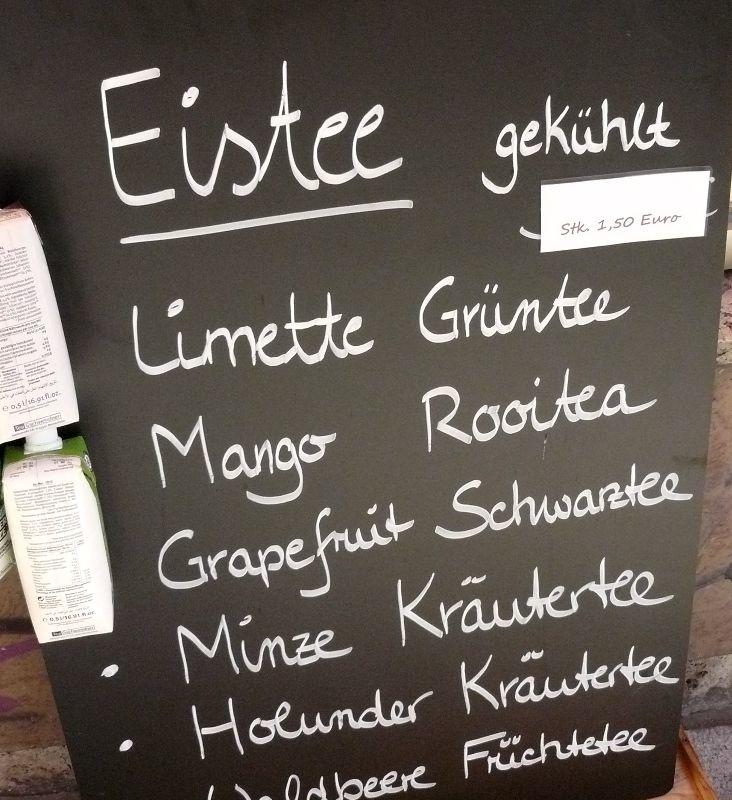 Eistee gekühlt
Stk. 1,50 Euro
Limette Grüntee
Mango Rooitea
Grapefruit Schwarztee
• Minze Kräutertee
• Holunder Kräutertee
Waldbeere Früchtetee
0,5l/16.91fl.oz.
0,5l/16.91fl.oz.